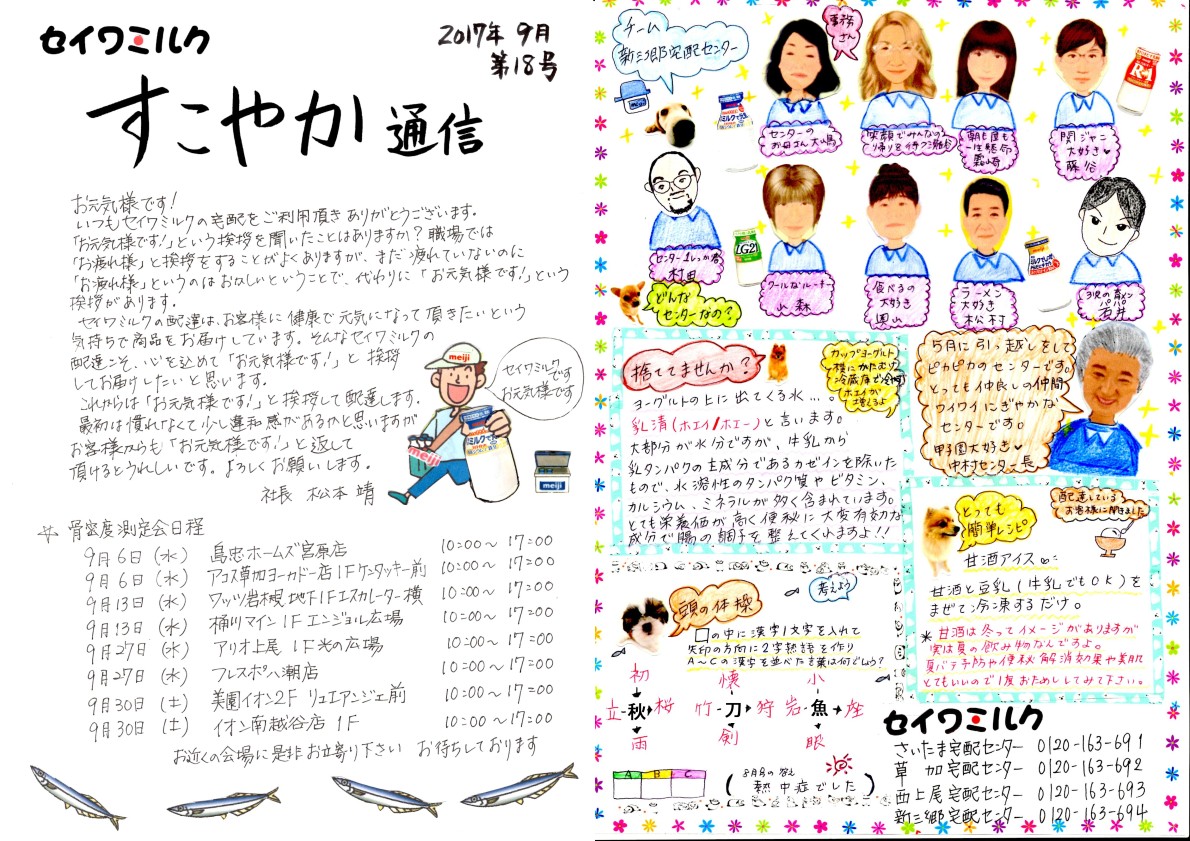 セイワミルク
2017年 9月
第18号
すこやか 通信
お元気様です!
いつもセイワミルクの宅配をご利用頂き ありがとうございます。
「お元気様です!」という挨拶を聞いたことはありますか? 職場では
「お疲れ様」と挨拶をすることがよくありますが、まだ疲れていないのに
「お疲れ様」というのはおかしいということで、代わりに「お元気様です!」という
挨拶があります。
セイワミルクの配達は、お客様に健康で元気になって頂きたいという
気持ちで商品をお届けしています。そんなセイワミルクの
配達こそ、心を込めて「お元気様です!」と 挨拶
してお届けしたいと思います。
これからは「お元気様です!」と挨拶して配達します。
最初は慣れなくて少し違和感があるかと思いますが
お客様からも「お元気様です!」と返して
頂けるとうれしいです。よろしくお願いします。
社長 松本 靖
meiji
セイワミルクです
お元気様です
meiji
meiji
骨密度測定会日程
9月6日 (水) 島忠ホームズ宮原店 10:00〜17:00
9月6日 (水) アコス草加ヨーカドー店1Fケンタッキー前 10:00〜17:00
9月13日 (水) ワッツ岩槻 地下1Fエスカレーター横 10:00〜17:00
9月13日 (水) 桶川マイン 1F エンジョル広場 10:00〜17:00
9月27日 (水) アリオ上尾 1F光の広場 10:00〜17:00
9月27日 (水) フレスポ八潮店 10:00〜17:00
9月30日 (土) 美園イオン2F リュエアンジェ前 10:00〜17:00
9月30日 (土) イオン南越谷店 1F 10:00〜17:00
お近くの会場に是非お立寄り下さい お待ちしております
チーム
新三郷宅配センター
事務さん
R-1
センターの
お母さん 大嶋
笑顔でみんなの
朝も昼も
一生懸命
霜崎
関ジャニ
大好き♥
藤谷
センター1しっかり者
村田
LG21
クールなルーキー
小森
食べるの
大好き
園山
ラーメン
大好き
松村
3児の育メン
パパ
石井
どんな
センターなの?
5月に引っ越しをして
ピカピカのセンターです。
とっても仲良しの仲間
ワイワイにぎやかな
センターです。
甲子園大好き♥
中村センター長
捨ててませんか?
カップヨーグルト
横にかたむけ
ホエイが
増えるよ
ヨーグルトの上に出てくる水...。
乳清(ホエイ/ホエー)と言います。
大部分が水分ですが、牛乳から
乳タンパクの主成分であるカゼインを除いた
もので、水溶性のタンパク質やビタミン、
カルシウム、ミネラルが多く含まれています。
とても栄養価が高く便秘に大変有効な
成分で腸の調子を整えてくれますよ!!
とっても
簡単レシピ
配達している
お客様に聞きました
甘酒アイス
甘酒と豆乳(牛乳でもOK)を
まぜて冷凍するだけ。
*甘酒は冬ってイメージがありますが
実は夏の飲み物なんですよ。
夏バテ予防や便秘解消効果や美肌
とてもいいので1度おためししてみて下さい。
頭の体操
考えよう
□の中に漢字1文字を入れて
矢印の方向に2字熟語を作り
A〜Cの漢字を並べた言葉は何でしょう?
初 懐 小
立-秋▸桜 竹-刀▸狩 岩-魚▸座
雨 剣 眼
A B C
(8月号の答え
熱中症でした)
セイワミルク
さいたま宅配センター 0120-163-691
草 加宅配センター 0120-163-692
西上尾宅配センター 0120-163-693
新三郷宅配センター 0120-163-694